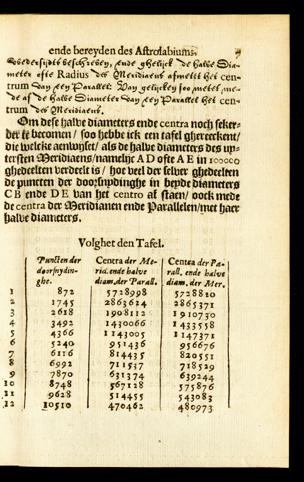 ende bereyden des Astrolabiums. 7
wedersijdts beschreven, ende ghelijck de halve Dia-
meter ofte Radius des Meridiaens afmett het cen-
trum van een Parallel: Van gelijcken soo metet me-
de af de halve Diameter van een Parallel het cen-
trum des Meridiaens.
Om dese halve diameters ende centra noch seker-
der te becomen / soo hebbe ick een tafel ghereeckent /
die welcke aenwijset / als de halve diameters des up-
tersten Meridiaens / namelijc AD ofte AE in 100000
ghedeelten verdeelt is / hoe veel der selver ghedeelten
de puncten der doorsnydinghe in beyde diameters
CB ende DE van het centro af staen / oock mede
de centra der Meridianen ende Parallelen / met haer
halve diameters.
Volghet den Tafel.
Puncten der Centra der Me- Centra der Pa-
doorsnydin- rid. ende halve rall. ende halve
ghe. diam. der Parall. diam. der Mer.
1 872 5728998 5728820
2 1745 2863624 2865371
3 2618 1908112 1910730
4 3492 1430066 1433558
5 4366 1143005 1147371
6 5240 951436 956676
7 6116 814435 820551
8 6992 711537 718529
9 7870 631374 639244
10 8748 567128 575876
11 9628 514455 543083
12 10510 470462 480973